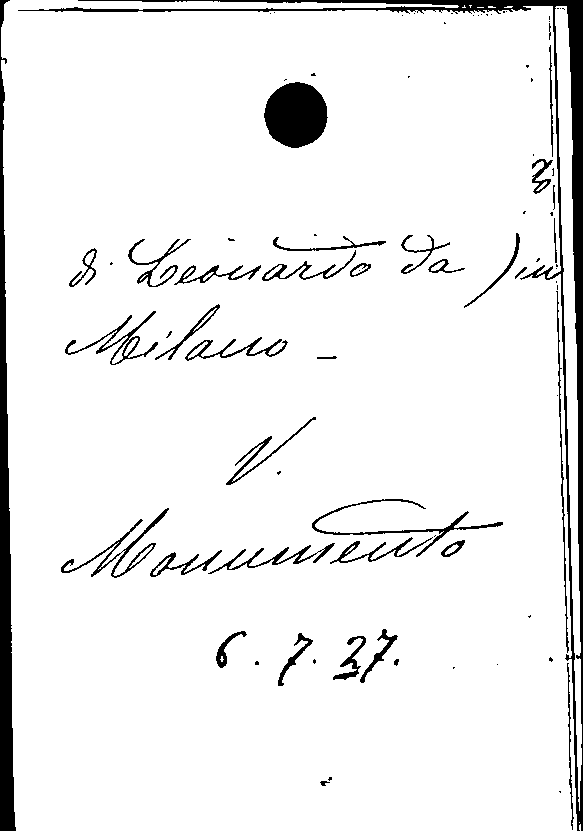 di Leonardo da ) in
Milano -
V.
Monumento
6. 7. 27.